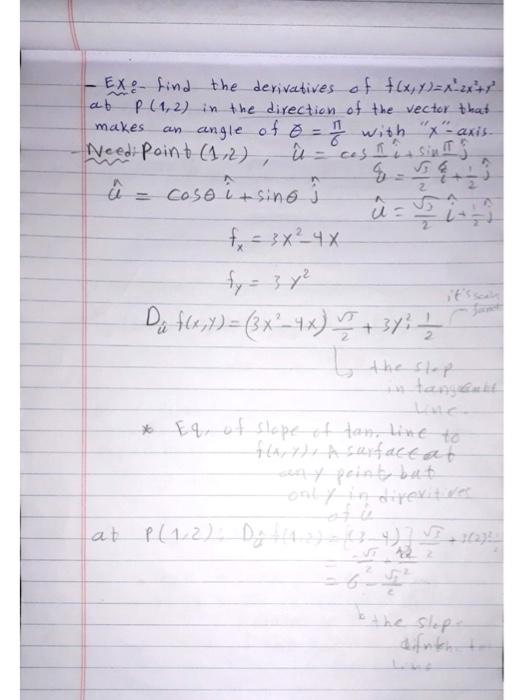 - Ex:- find the derivatives of f(x,y)=x³-2x²+y³
at P(1,2) in the direction of the vector that
makes an angle of θ = π/6 with "x"-axis.
- Need: Point (1,2), û = cos π/6 î + sin π/6 ĵ
= √3/2 î + 1/2 ĵ
û = cosθ î + sinθ ĵ
û = √3/2 î + 1/2 ĵ
fx = 3x²-4x
fy = 3y²
it's
Dû f(x,y) = (3x²-4x) √3/2 + 3y² · 1/2
↳ the slop
in
line.
* Eq. of slope of tan. line to
f(x,y), A surface at
any point, but
only in
of û
at P(1,2): Dû f(1,2) = (3-4) √3/2 + 3(2)²
= -√3/2
= 6 - √3/2
↳ the slop
line